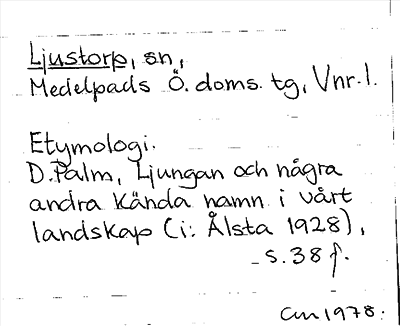 Ljustorp, sn,
Medelpads Ö. doms. tg, Vnr. 1.
Etymologi.
D. Palm, Ljungan och några
andra kända namn i vårt
landskap (i: Ålsta 1928),
s. 38 f.
CM 1978.